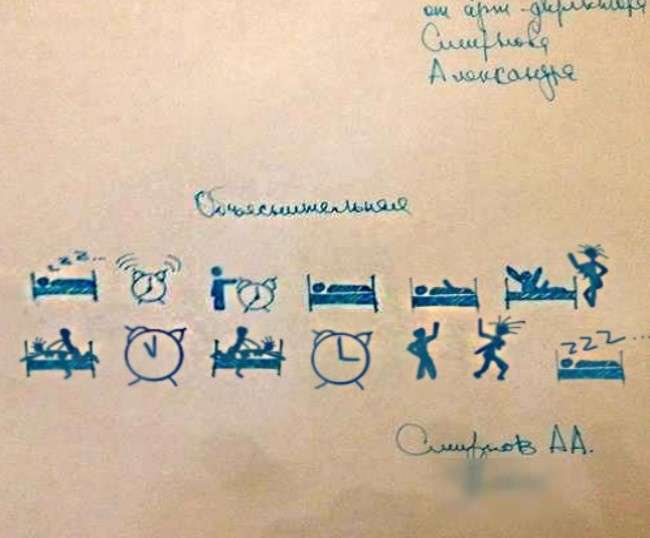 от арт-директора
Смирнова
Александра
Объяснительная
zzz...
zzz...
Смирнов АА.